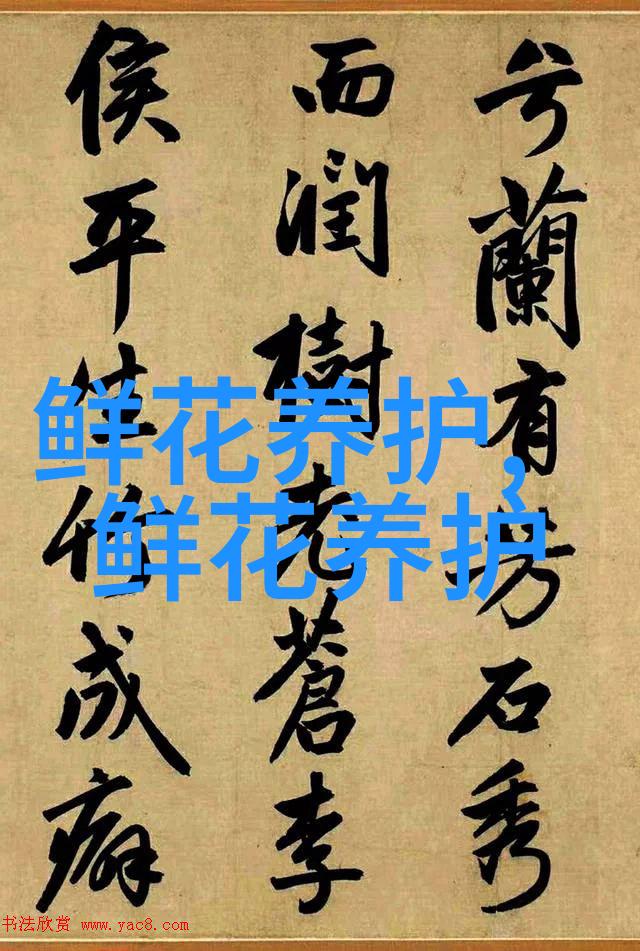 兮蘭有芳石秀
而潤樹老蒼李
侯平成癖
鲜花养护,
鲜花养护
书法欣赏 www.yac8.com